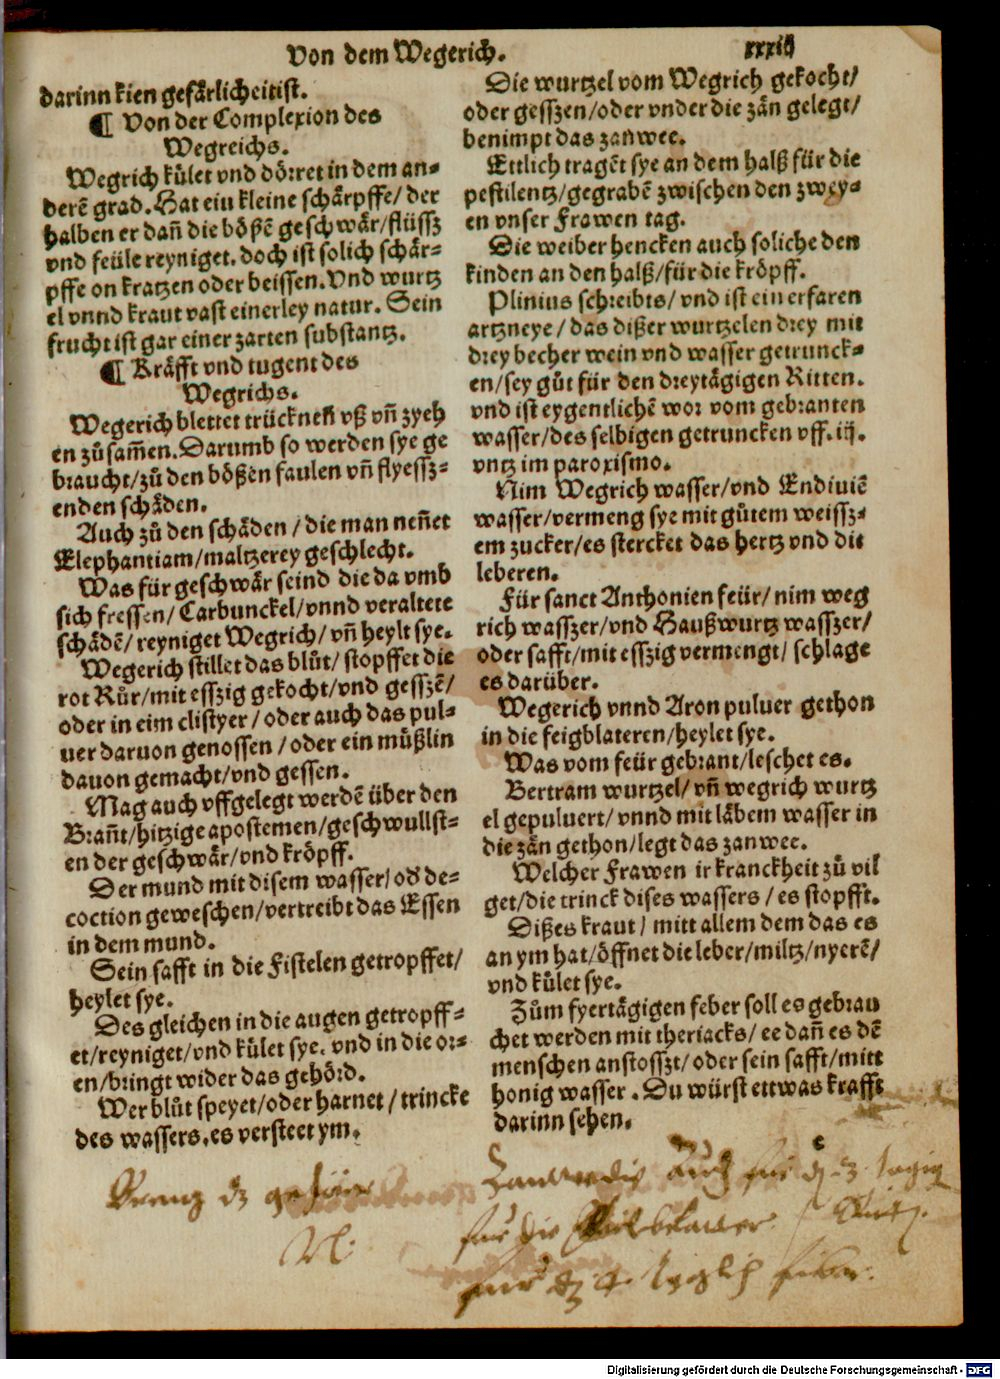 Von dem Wegerich.
xxxiij
darinn kien gefärlicheit ist.
¶ Von der Complexion des
Wegreichs.
Wegrich kület vnd dörret in dem an-
derē grad. Hat ein kleine schärpffe/ der
halben er dañ die bößē geschwär/flüssz
vnd feüle reyniget. doch ist solich schär-
pffe on kratzen oder beissen. Vnd wurtz
el vnnd kraut vast einerley natur. Sein
frucht ist gar einer zarten substantz.
¶ Kräfft vnd tugent des
Wegrichs.
Wegerich bletter trücknen vß vñ zyeh
en zůsam̃en. Darumb so werden sye ge
braucht/zů den bößen faulen vñ flyessz-
enden schäden.
Auch zů den schäden / die man neñet
Elephantiam/maltzerey geschlecht.
Was für geschwär seind die da vmb
sich fressen/ Carbunckel/vnnd veraltete
schädē/ reyniget Wegrich/ vñ heylt sye.
Wegerich stillet das blůt/ stopffet die
rot Růr/mit esszig gekocht/vnd gesszē/
oder in eim clistyer / oder auch das pul-
uer daruon genossen / oder ein můßlin
dauon gemacht/vnd gessen.
Mag auch vffgelegt werdē über den
Brañt/hitzige apostemen/geschwullst-
en der geschwär/vnd kröpff.
Der mund mit disem wasser/ od̄ de-
coction geweschen/vertreibt das Essen
in dem mund.
Sein safft in die Fistelen getropffet/
heylet sye.
Des gleichen in die augen getropff-
et/reyniget/vnd kület sye. vnd in die or-
en/bringt wider das gehörd.
Wer blůt speyet/oder harnet / trincke
des wassers, es versteet ym.
Die wurtzel vom Wegrich gekocht/
oder gesszen/oder vnder die zän gelegt/
benimpt das zanwee.
Ettlich tragēt sye an dem halß für die
pestilentz/gegrabē zwischen den zwey-
en vnser Frawen tag.
Die weiber hencken auch soliche den
kinden an den halß/für die kröpff.
Plinius schreibts/ vnd ist ein erfaren
artzneye / das dißer wurtzelen drey mit
drey becher wein vnd wasser getrunck-
en/sey gůt für den dreytägigen Ritten.
vnd ist eygentlichē wor vom gebranten
wasser/des selbigen getruncken vff. iij.
vntz im paroxismo.
Nim Wegrich wasser/vnd Endiuiē
wasser/vermeng sye mit gůtem weissz-
em zucker/es stercket das hertz vnd die
leberen.
Für sanct Anthonien feür/ nim weg
rich wasszer/vnd Haußwurtz wasszer/
oder safft/mit esszig vermengt/ schlage
es darüber.
Wegerich vnnd Aron puluer gethon
in die feigblateren/heylet sye.
Was vom feür gebrant/leschet es.
Bertram wurtzel/ vñ wegrich wurtz
el gepuluert/ vnnd mit läbem wasser in
die zän gethon/legt das zanwee.
Welcher Frawen ir kranckheit zů vil
get/die trinck dises wassers / es stopfft.
Dißes kraut / mitt allem dem das es
an ym hat/öffnet die leber/miltz/nyerē/
vnd kület sye.
Zům fyertägigen feber soll es gebrau
chet werden mit theriacks/ ee dañ es dē
menschen anstosszt/oder sein safft/mitt
honig wasser . Du würst ettwas krafft
darinn sehen.
Digitalisierung gefördert durch die Deutsche Forschungsgemeinschaft - DFG